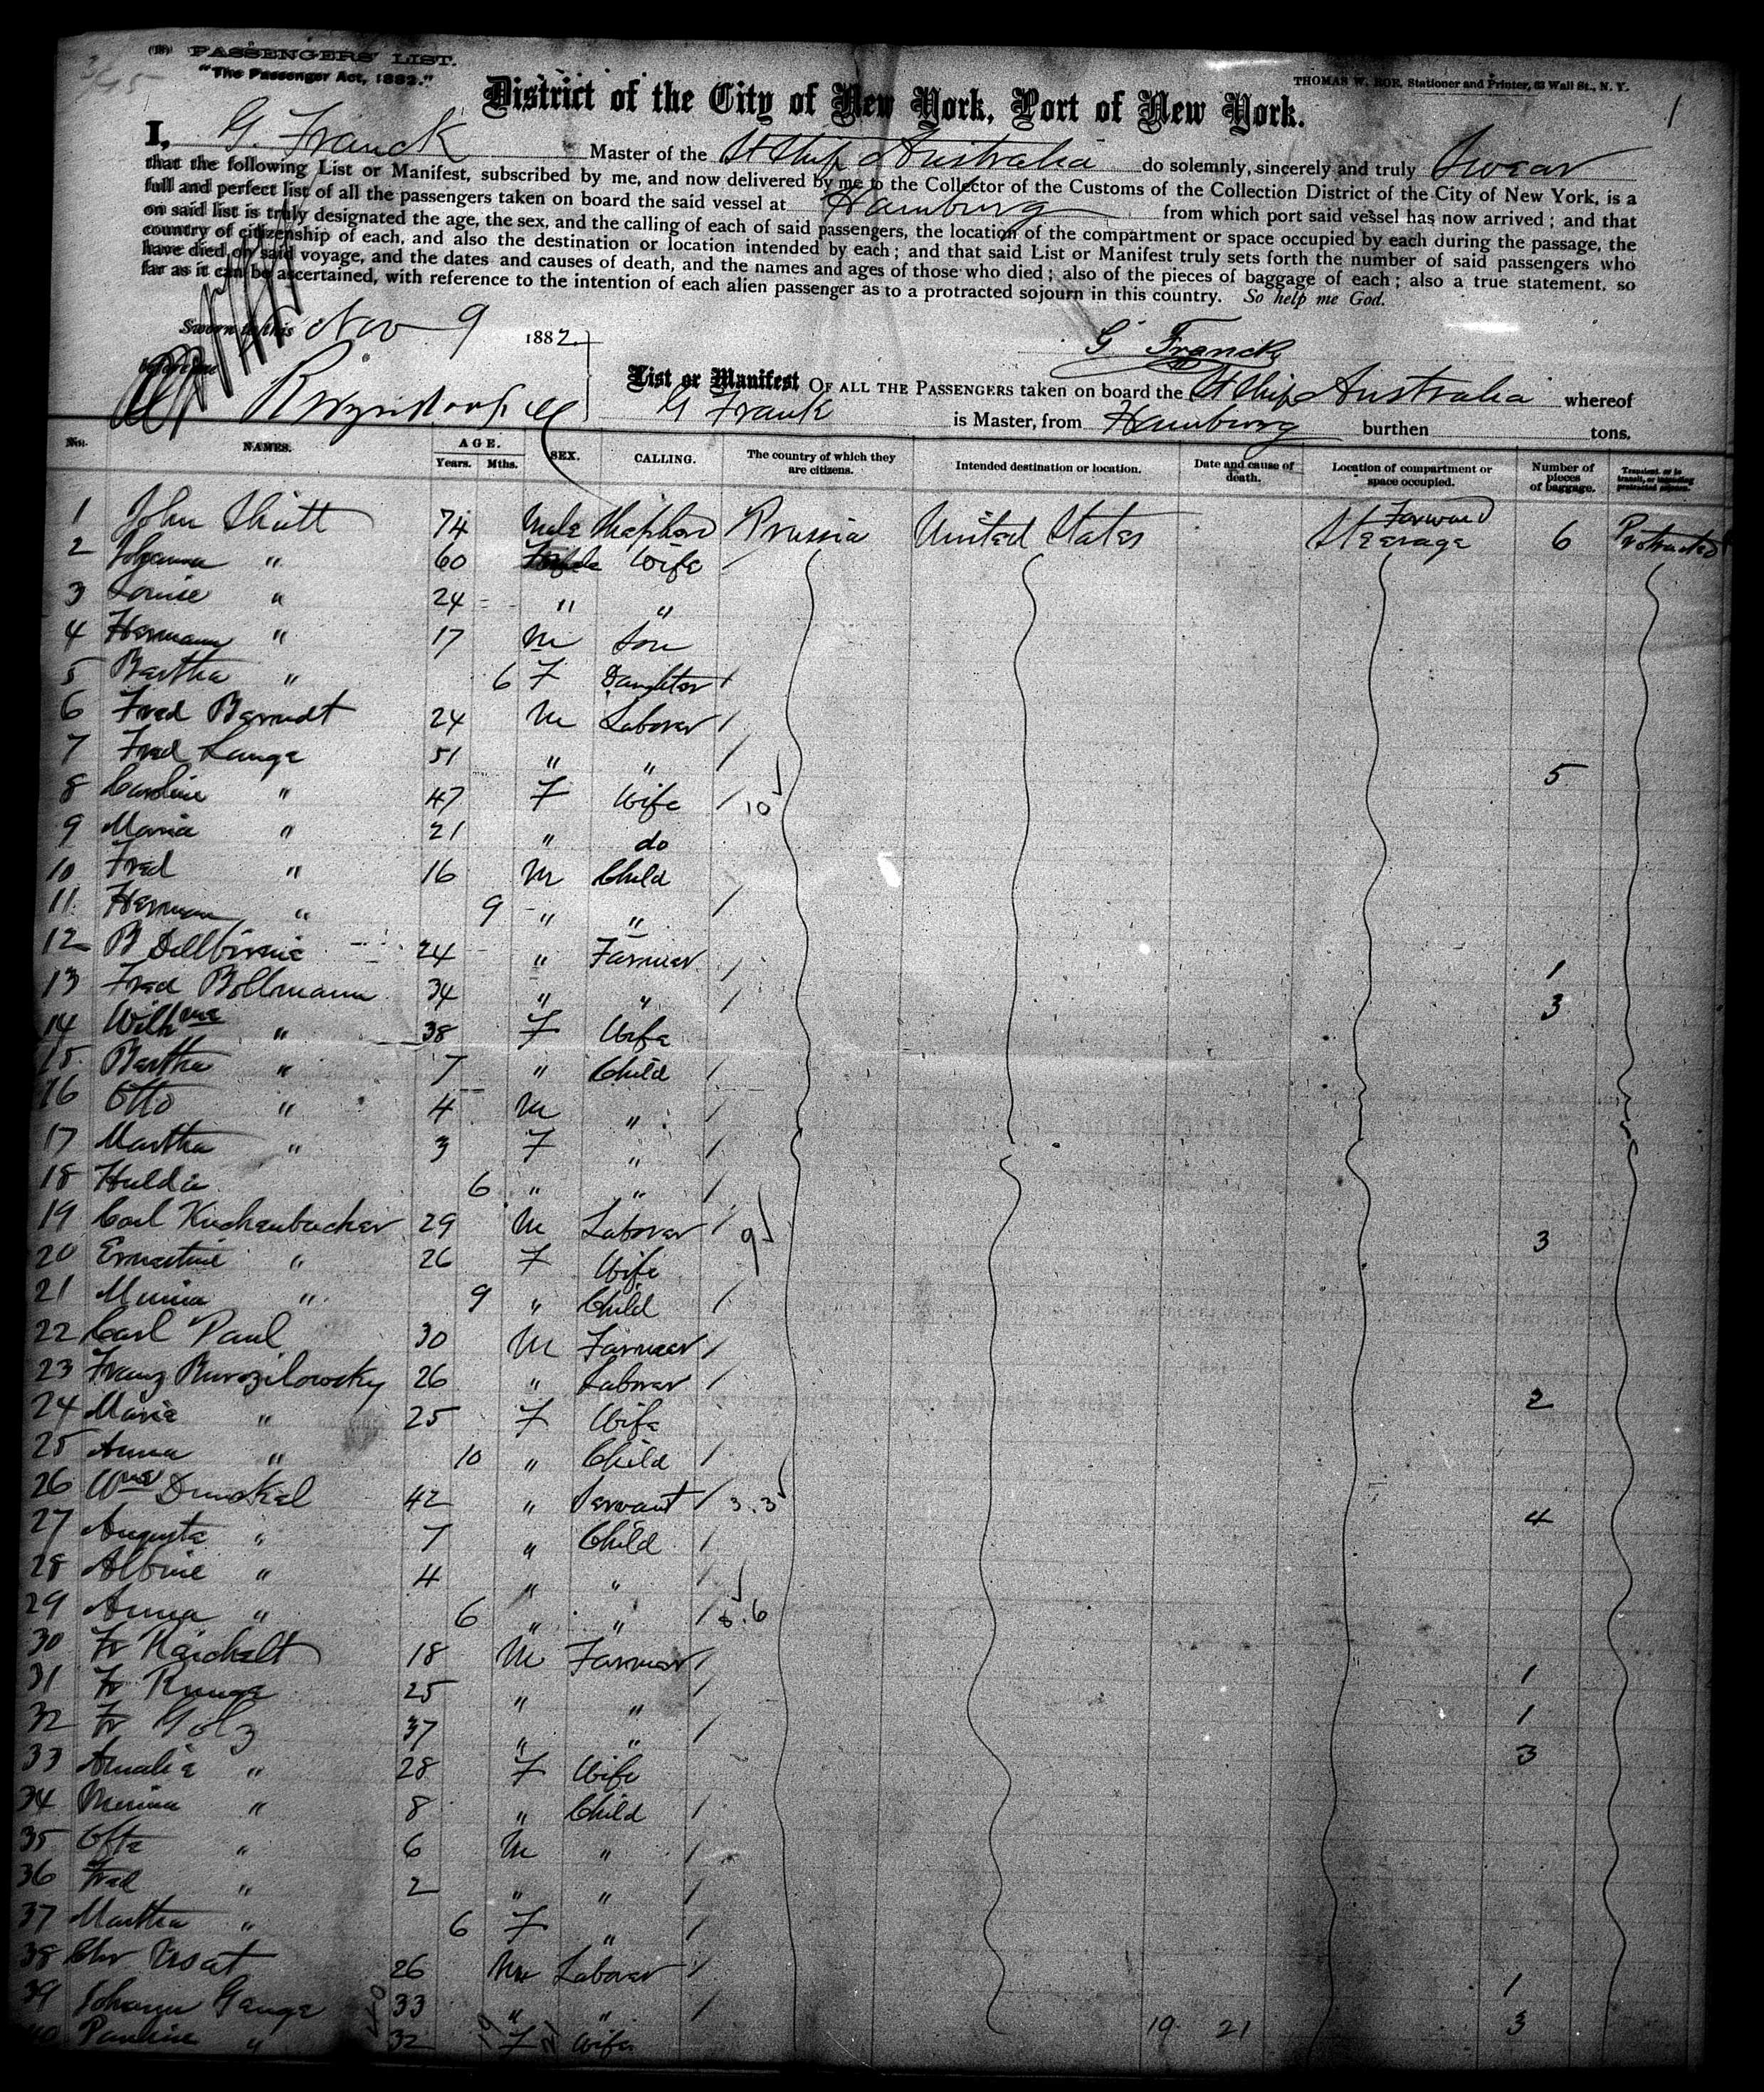 (18) PASSENGERS' LIST.
"The Passenger Act, 1882."
THOMAS W. ROE, Stationer and Printer, 63 Wall St., N. Y.
365
1
District of the City of New York, Port of New York.
I, G. Franck Master of the St Ship Australia do solemnly, sincerely and truly Swear
that the following List or Manifest, subscribed by me, and now delivered by me to the Collector of the Customs of the Collection District of the City of New York, is a
full and perfect list of all the passengers taken on board the said vessel at Hamburg from which port said vessel has now arrived; and that
on said list is truly designated the age, the sex, and the calling of each of said passengers, the location of the compartment or space occupied by each during the passage, the
country of citizenship of each, and also the destination or location intended by each; and that said List or Manifest truly sets forth the number of said passengers who
have died on said voyage, and the dates and causes of death, and the names and ages of those who died; also of the pieces of baggage of each; also a true statement, so
far as it can be ascertained, with reference to the intention of each alien passenger as to a protracted sojourn in this country. So help me God.
Sworn to this Nov 9 1882
G Franck
before me
List or Manifest OF ALL THE PASSENGERS taken on board the St Ship Australia whereof
G Frank is Master, from Hamburg burthen tons.
No. NAMES. AGE. Years. Mths. SEX. CALLING. The country of which they are citizens. Intended destination or location. Date and cause of death. Location of compartment or space occupied. Number of pieces of baggage. Transient, or in transit, or intending protracted sojourn.
1 John Shütt 74 Male Shephard Prussia United States Forward Steerage 6 Protracted
2 Johanna " 60 Wife /
3 Louise " 24 " "
4 Hermann " 17 M Son
5 Bertha " 6 F Daughter /
6 Fred Berndt 24 M Laborer /
7 Fred Lange 51 " " / 5
8 Caroline " 47 F Wife / 10
9 Maria " 21 " do
10 Fred " 16 M Child
11 Herman " 9 " " /
12 B 24 " Farmer / 1
13 Fred Bollmann 34 " " / 3
14 Wilhme " 38 F Wife
15 Bertha " 7 " Child /
16 Otto " 4 M " /
17 Martha " 3 F " /
18 Hulda 6 " " /
19 Carl Kuchenbacker 29 M Laborer / 9 3
20 Ernestine " 26 F Wife
21 Minna " 9 " Child /
22 Carl Paul 30 M Farmer /
23 Franz 26 " Laborer / 2
24 Marie " 25 F Wife
25 Anna " 10 " Child /
26 Wme Dunckel 42 " Servant / 3.3 4
27 Auguste " 7 " Child /
28 Albine " 4 " " /
29 Anna " 6 " " / 6
30 Fr Reichelt 18 M Farmer / 1
31 Fr Runge 25 " " / 1
32 Fr Golz 37 " " / 3
33 Amalie " 28 F Wife
34 Minna " 8 " Child /
35 " 6 M " /
36 Fred " 2 " " /
37 Martha " 6 F " /
38 Chr 26 M Laborer / 1
39 Johann Gange 33 " " / 3
40 Pauline " 32 F Wife 19 21